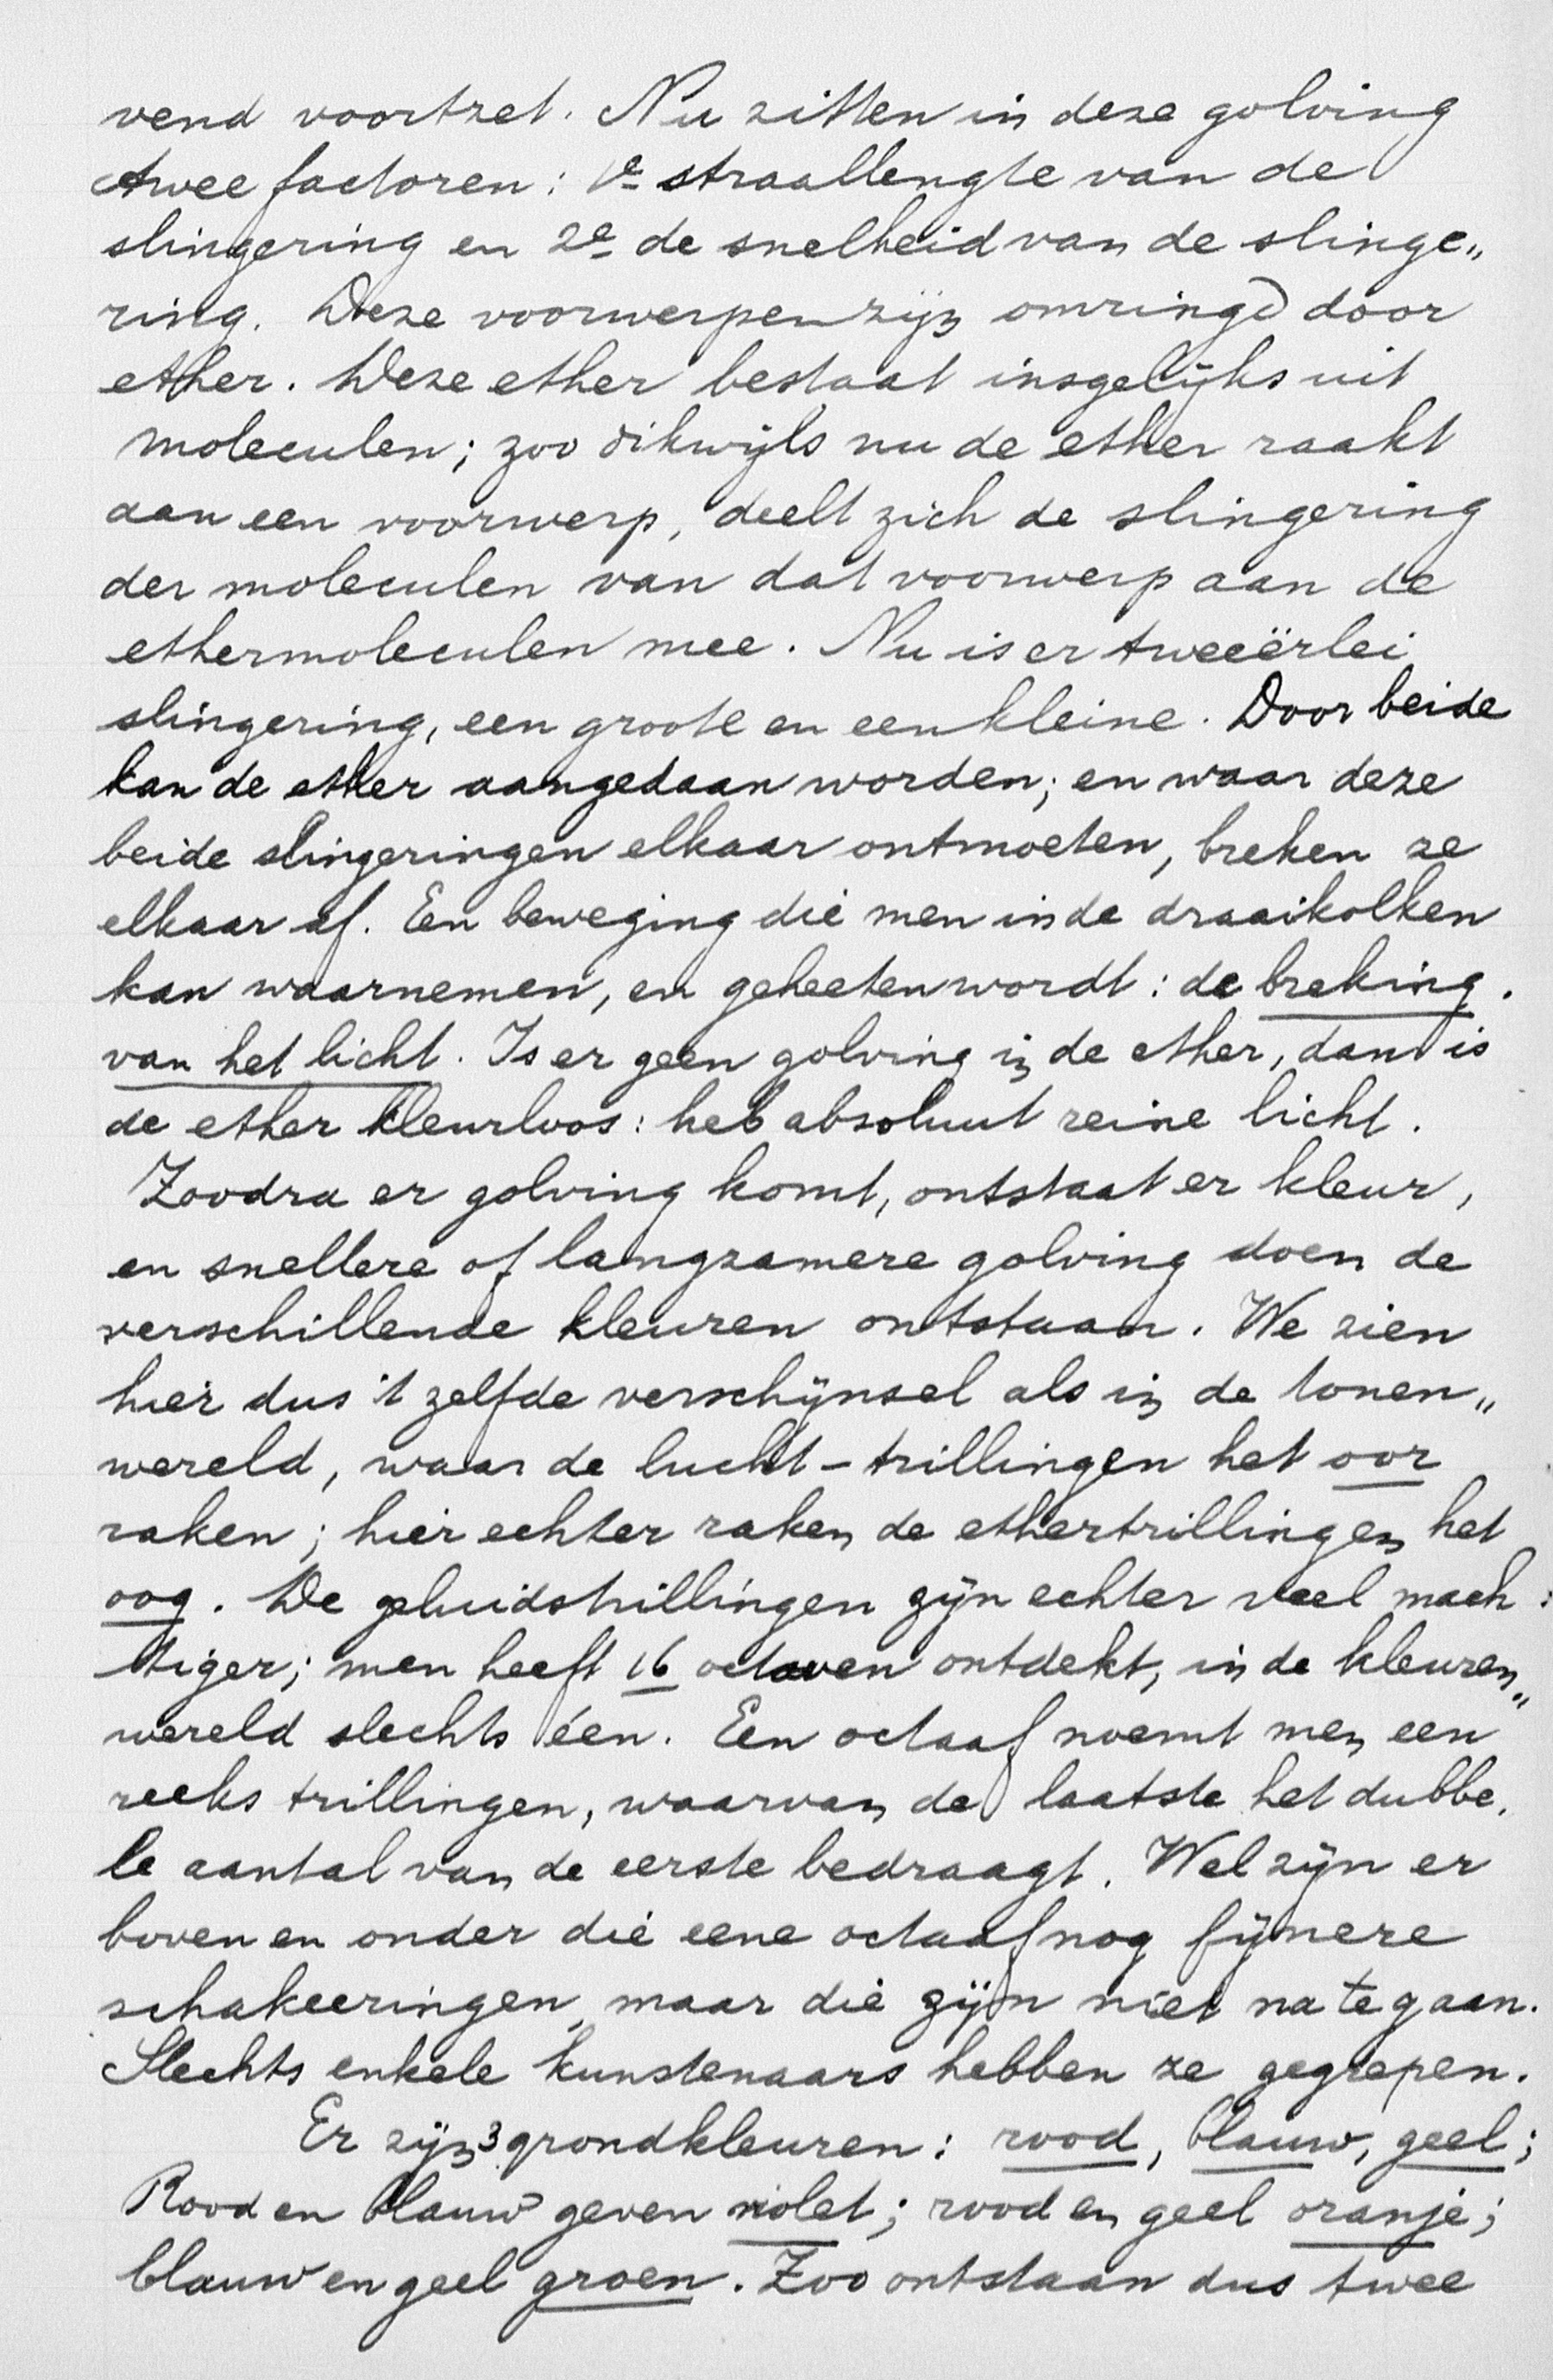 vend voortzet. Nu zitten in deze golving
twee factoren: 1e straallengte van de
slingering en 2e de snelheid van de slinge„
ring. Deze voorwerpen zijn omringd door
ether. Deze ether bestaat insgelijks uit
moleculen; zoo dikwijls nu de ether raakt
aan een voorwerp, deelt zich de slingering
der moleculen van dat voorwerp aan de
ethermoleculen mee. Nu is er tweeërlei
slingering, een groote en een kleine. Door beide
kan de ether aangedaan worden; en waar deze
beide slingeringen elkaar ontmoeten, breken ze
elkaar af. Een beweging die men in de draaikolken
kan waarnemen, en geheeten wordt: de breking.
van het licht. Is er geen golving in de ether, dan is
de ether kleurloos: het absoluut reine licht.
Zoodra er golving komt, ontstaat er kleur,
en snellere of langzamere golving doen de
verschillende kleuren ontstaan. We zien
hier dus 't zelfde verschijnsel als in de tonen„
wereld, waar de lucht-trillingen het oor
raken; hier echter raken de ethertrillingen het
oog. De geluidstrillingen zijn echter veel mach:
tiger; men heeft 16 octaven ontdekt, in de kleuren„
wereld slechts één. Een octaaf noemt men een
reeks trillingen, waarvan de laatste het dubbe,
le aantal van de eerste bedraagt. Wel zijn er
boven en onder die eene octaaf nog fijnere
schakeeringen, maar die zijn niet na te gaan.
Slechts enkele kunstenaars hebben ze gegrepen.
Er zijn 3 grondkleuren: rood, blauw, geel;
Rood en blauw geven violet; rood en geel oranje;
blauw en geel groen. Zoo ontstaan dus twee